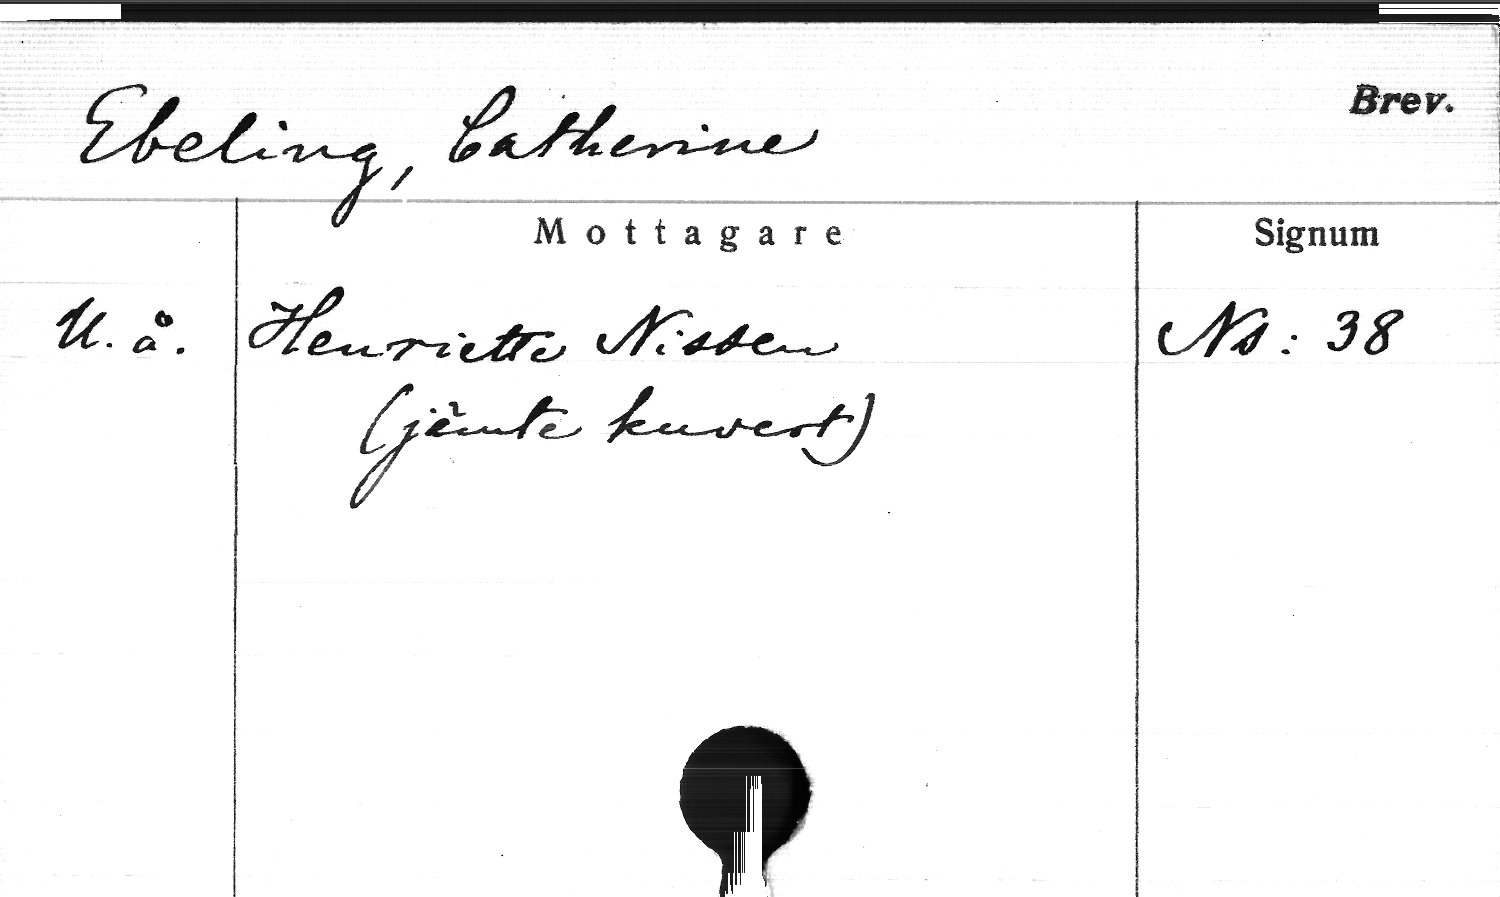 Brev.
Ebeling, Catherine
Mottagare
Signum
U. å.
Henriette Nissen
Ns: 38
(jämte kuvert)